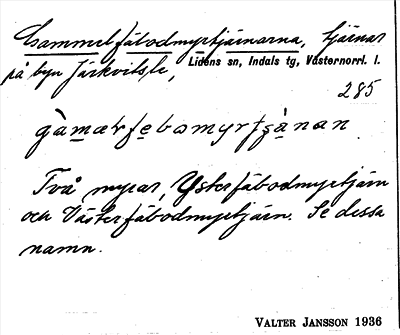 Gammelfäbodmyrtjärnarna, tjärnar
på byn Järkvitsle, Lidens sn, Indals tg, Västernorrl. l.
285
Två myrar, Ysterfäbodmyrtjärn
och Västerfäbodmyrtjärn. Se dessa
namn.
VALTER JANSSON 1936